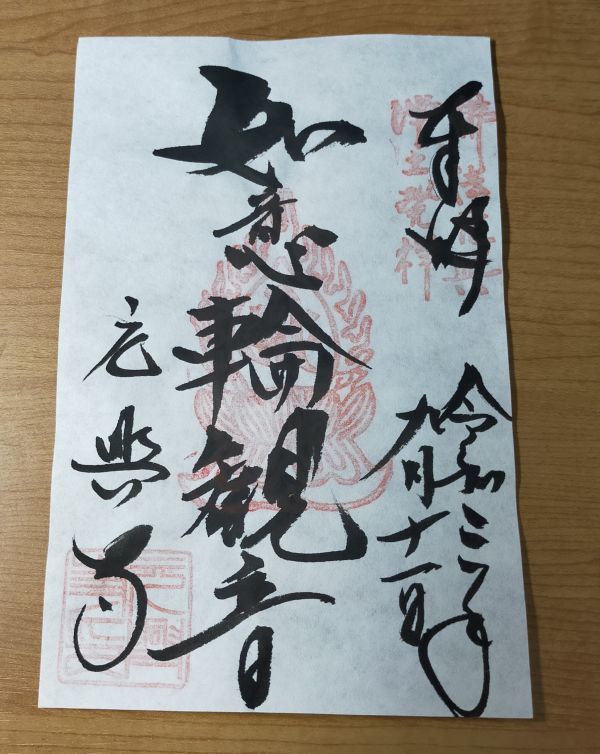 奉拝
令和三年
九月十一日
如意輪観音
元興寺